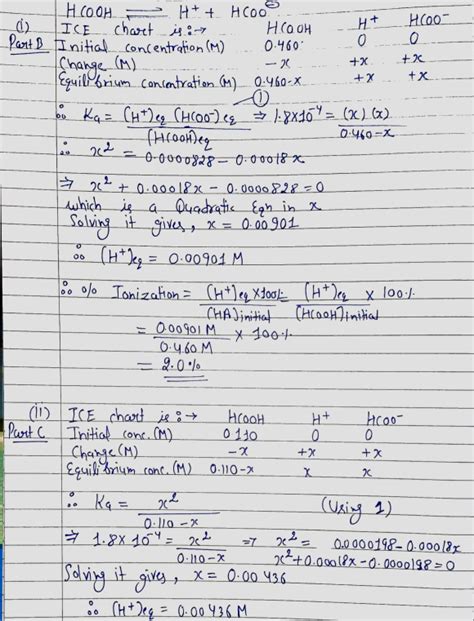 HCOOH ⇌ H⁺ + HCOO⁻
(i) ICE chart is :→ HCOOH H⁺ HCOO⁻
Part B Initial concentration (M) 0.460 0 0
Change (M) -x +x +x
Equilibrium concentration (M) 0.460-x +x +x
①
∴ Ka = (H⁺)eq (HCOO⁻)eq / (HCOOH)eq ⇒ 1.8×10⁻⁴ = (x) (x) / 0.460-x
∴ x² = 0.0000828 - 0.00018x
⇒ x² + 0.00018x - 0.0000828 = 0
which is a Quadratic Eqn in x
Solving it gives, x = 0.00901
∴ (H⁺)eq = 0.00901 M
∴ % Ionization = (H⁺)eq × 100% / (HA)initial = (H⁺)eq / (HCOOH)initial × 100%
= 0.00901 M / 0.460 M × 100%
= 2.0%
(ii) ICE chart is :→ HCOOH H⁺ HCOO⁻
Part C Initial conc. (M) 0.110 0 0
Change (M) -x +x +x
Equilibrium conc. (M) 0.110-x x x
∴ Ka = x² / 0.110-x (Using 1)
⇒ 1.8×10⁻⁴ = x² / 0.110-x ⇒ x² = 0.0000198-0.00018x
x²+0.00018x-0.0000198=0
Solving it gives, x = 0.00436
∴ (H⁺)eq = 0.00436 M